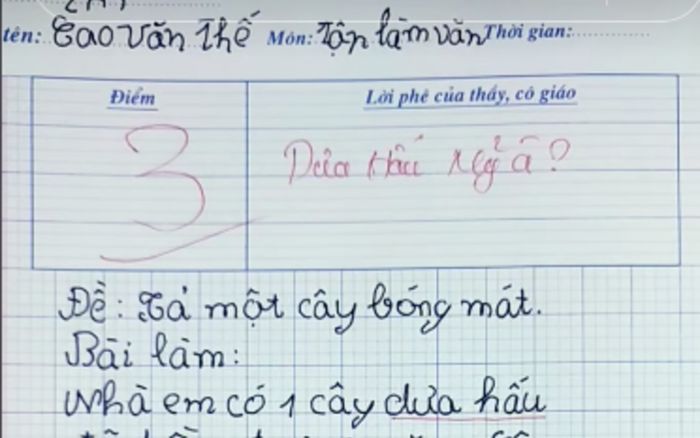 tên: Cao Văn Thế Môn: Tập làm văn Thời gian:
Điểm
Lời phê của thầy, cô giáo
3
Dưa Hấu
Đề: Tả một cây bóng mát.
Bài làm:
Nhà em có 1 cây dưa hấu